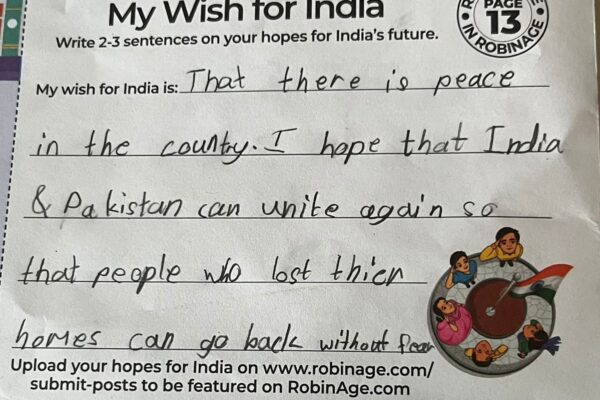 My Wish for India
PAGE
13
IN ROBINAGE
Write 2-3 sentences on your hopes for India's future.
My wish for India is: That there is peace
in the country. I hope that India
& Pakistan can unite again so
that people who lost thier
homes can go back without fear
Upload your hopes for India on www.robinage.com/
submit-posts to be featured on RobinAge.com